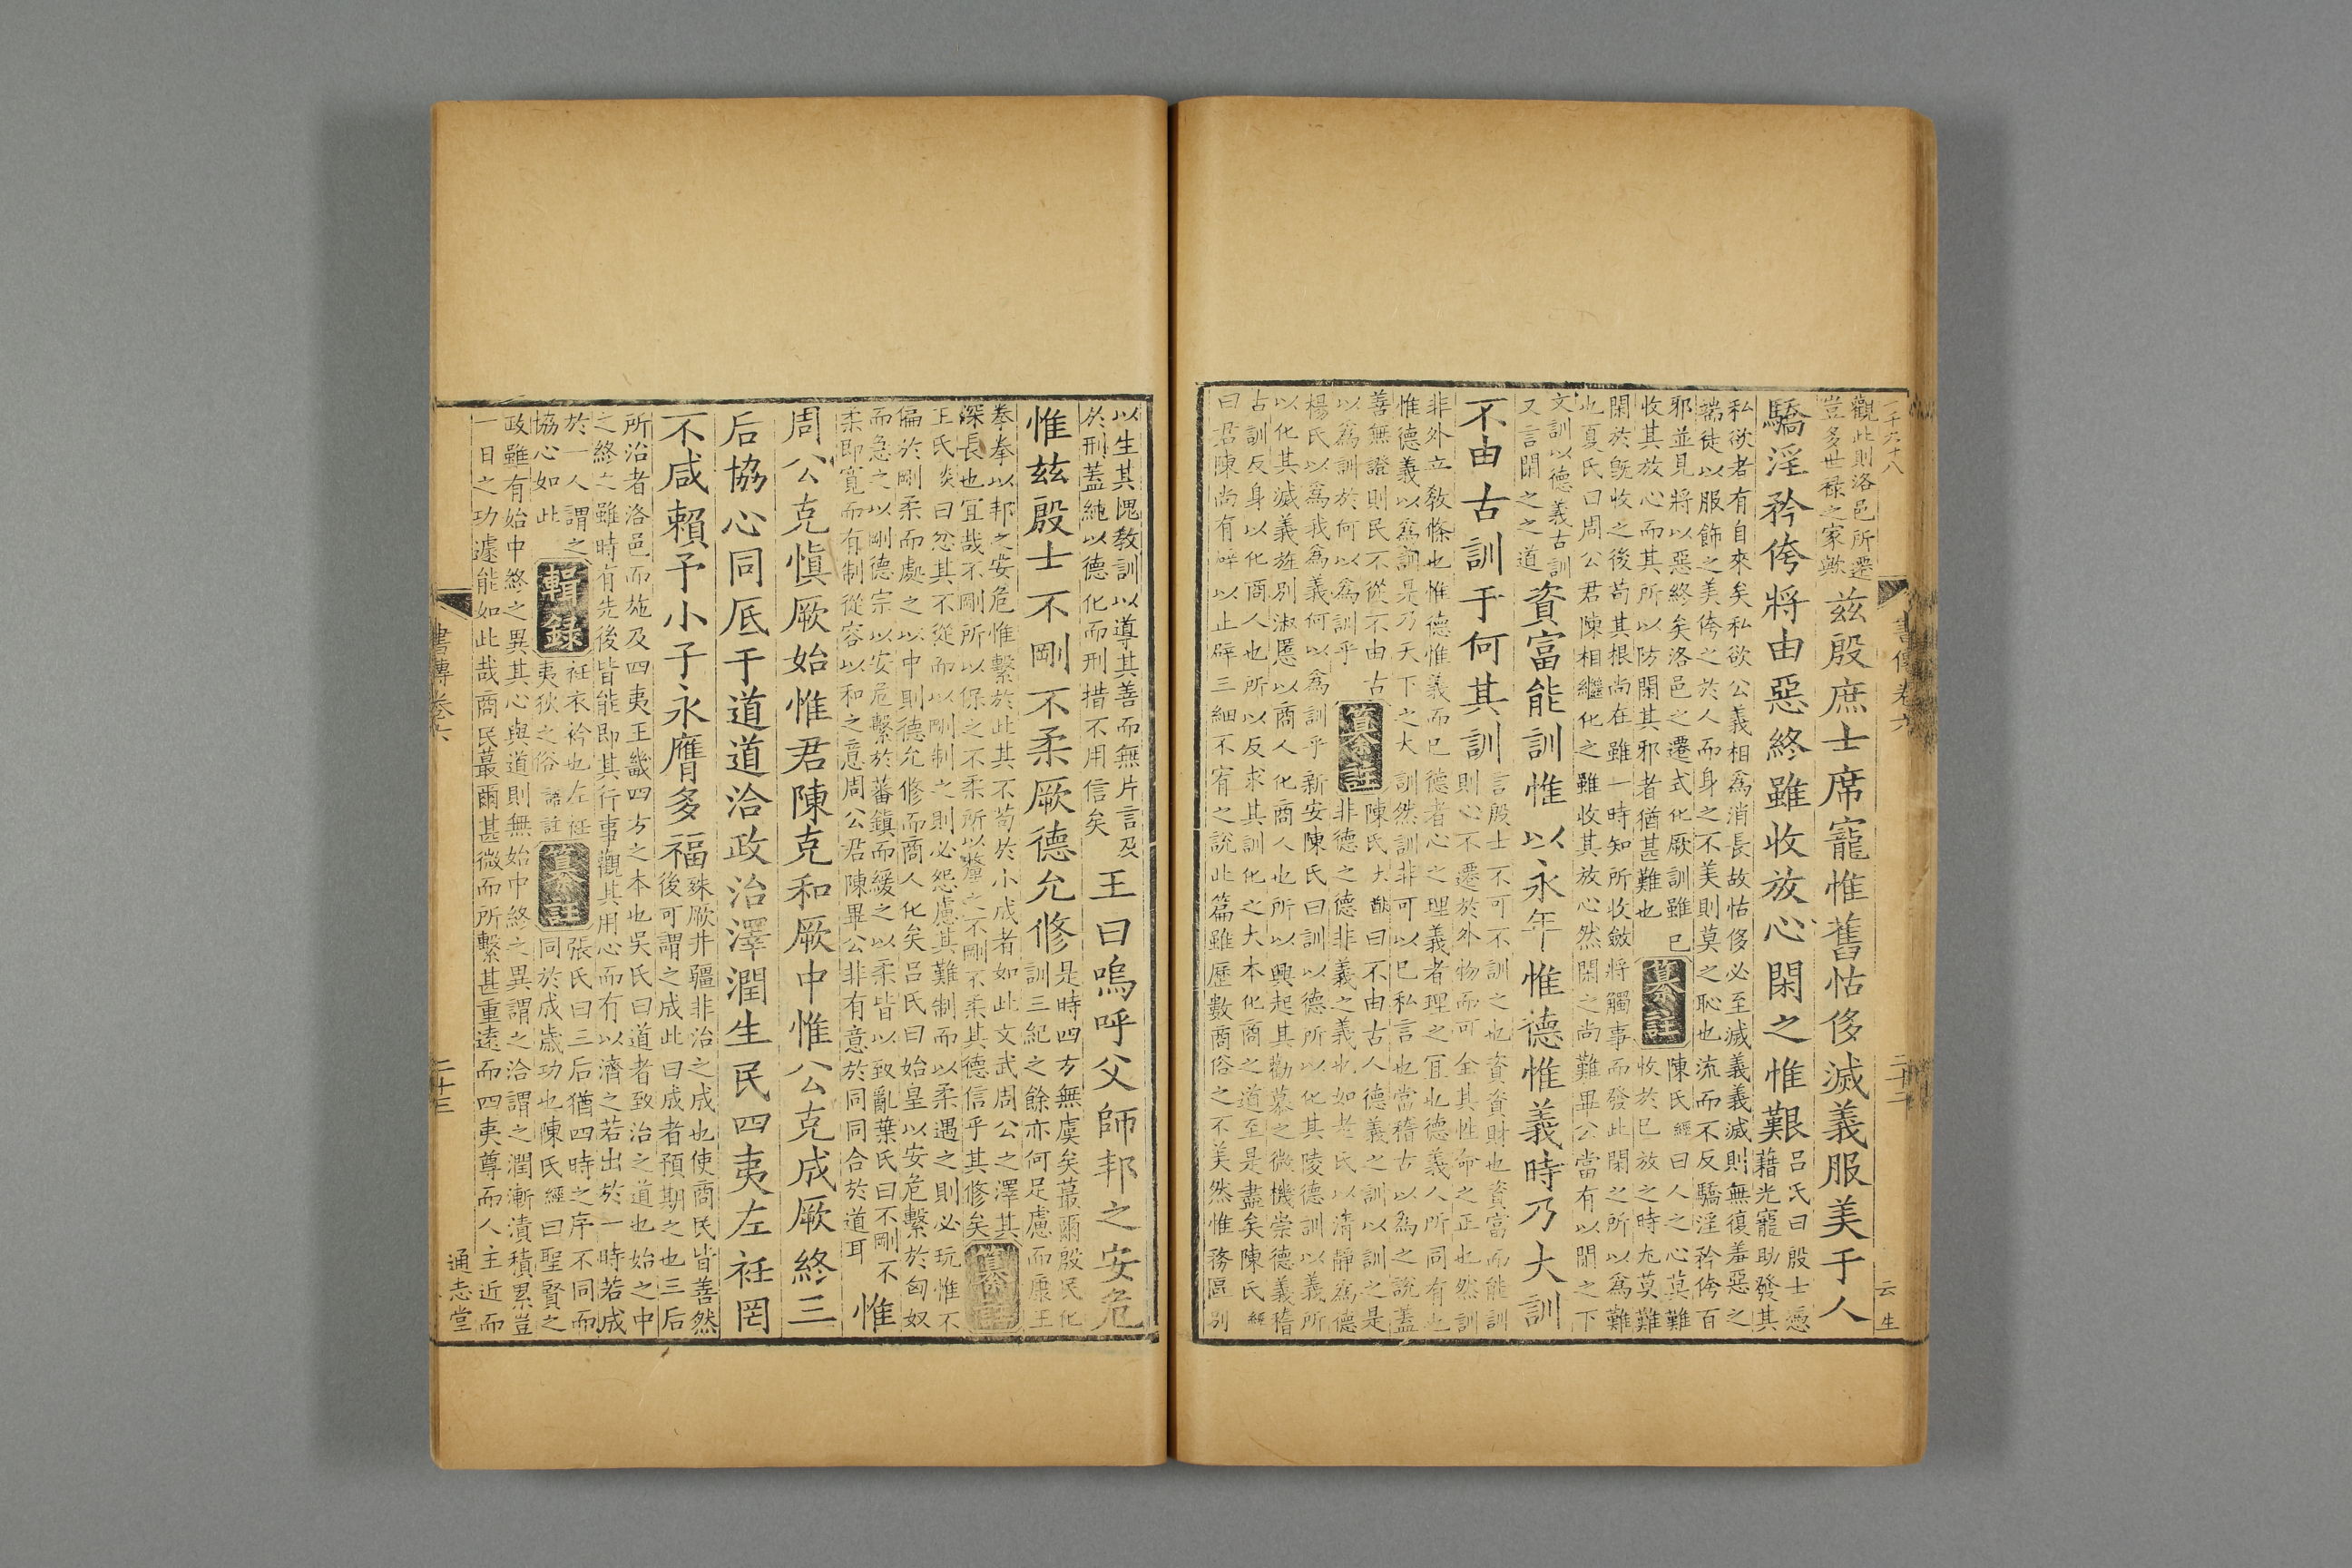 一千六十八
書傳卷六
二十二
云生
觀此則洛邑所遷
豈多世祿之家歟
茲殷庶士席寵惟舊怙侈滅義服美于人
驕淫矜侉將由惡終雖收放心閑之惟艱
呂氏曰殷士憑
藉光寵助發其
私欲者有自來矣私欲公義相為消長故怙侈必至滅義義滅則無復羞惡之
端徒以服飾之美侉之於人而身之不美則莫之恥也流而不反驕淫矜侉百
邪並見將以惡終矣洛邑之遷式化厥訓雖已
收其放心而其所以防閑其邪者猶甚難也
纂註
陳氏經曰人之心莫難
收於已放之時尤莫難
閑於旣收之後苟其根尚在雖一時知所收斂將觸事而發此閑之所以為難
也夏氏曰周公君陳相繼化之雖收其放心然閑之尚難畢公當有以閑之下
文訓以德義古訓
又言閑之之道
資富能訓惟以永年惟德惟義時乃大訓
不由古訓于何其訓
言殷士不可不訓之也資資財也資富而能訓
則心不遷於外物而可全其性命之正也然訓
非外立敎條也惟德惟義而已德者心之理義者理之宜也德義人所同有也
惟德義以為訓是乃天下之大訓然訓非可以己私言也當稽古以為之說蓋
善無證則民不從不由古
以為訓於何以為訓乎
纂註
陳氏大猷曰不由古人德義之訓以訓之是
非德之德非義之義也如老氏以清靜為德
楊氏以為我為義何以為訓乎新安陳氏曰訓以德所以化其陵德訓以義所
以化其滅義旌別淑慝以商人化商人也所以興起其勸慕之微機崇德義稽
古訓反身以化商人也所以反求其訓化之大本化商之道至是盡矣陳氏經
曰君陳尚有辟以止辟三細不宥之說此篇雖歷數商俗之不美然惟務區別
以生其愧敎訓以導其善而無片言及
於刑蓋純以德化而刑措不用信矣
王曰嗚呼父師邦之安危
惟茲殷士不剛不柔厥德允修
是時四方無虞矣蕞爾殷民化
訓三紀之餘亦何足慮而康王
拳拳以邦之安危惟繫於此其不苟於小成者如此文武周公之澤其
深長也宜哉不剛所以保之不柔所以釐之不剛不柔其德信乎其修矣
纂註
王氏炎曰忿其不從而以剛制之則必怨慮其難制而以柔遇之則必玩惟不
偏於剛柔而處之以中則德允修而商人化矣呂氏曰始皇以安危繫於匈奴
而急之以剛德宗以安危繫於蕃鎮而緩之以柔皆以致亂葉氏曰不剛不
柔即寬而有制從容以和之意周公君陳畢公非有意於同同合於道耳
惟
周公克愼厥始惟君陳克和厥中惟公克成厥終三
后協心同厎于道道洽政治澤潤生民四夷左衽罔
不咸賴予小子永膺多福
殊厥井疆非治之成也使商民皆善然
後可謂之成此曰成者預期之也三后
所治者洛邑而施及四夷王畿四方之本也吳氏曰道者致治之道也始之中
之終之雖時有先後皆能即其行事觀其用心而有以濟之若出於一時若成
於一人謂之
協心如此
輯錄
衽衣衿也左衽
夷狄之俗語註
纂註
張氏曰三后猶四時之序不同而
同於成歲功也陳氏經曰聖賢之
政雖有始中終之異其心與道則無始中終之異謂之洽謂之潤漸漬積累豈
一日之功遽能如此哉商民蕞爾甚微而所繫甚重遠而四夷尊而人主近而
書傳卷六
二十三
通志堂